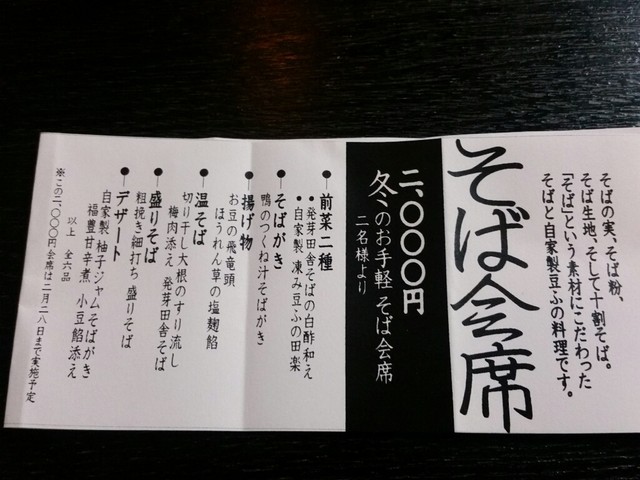 そばの実、そば粉、
そば生地、そして十割そば。
「そば」という素材にこだわった
そばと自家製豆ふの料理です。
そば会席
二、〇〇〇円
冬のお手軽 そば会席
二名様より
●前菜二種
●発芽田舎そばの白酢和え
●自家製 凍み豆ふの田楽
●そばがき
鴨のつくね汁そばがき
●揚げ物
お豆の飛竜頭
ほうれん草の塩麹餡
●温そば
切り干し大根のすり流し
梅肉添え 発芽田舎そば
●盛りそば
粗挽き細打ち 盛りそば
●デザート
自家製 柚子ジャムそばがき
福豊甘辛煮 小豆餡添え
以上 全六品
※この二、〇〇〇円会席は二月二八日まで実施予定